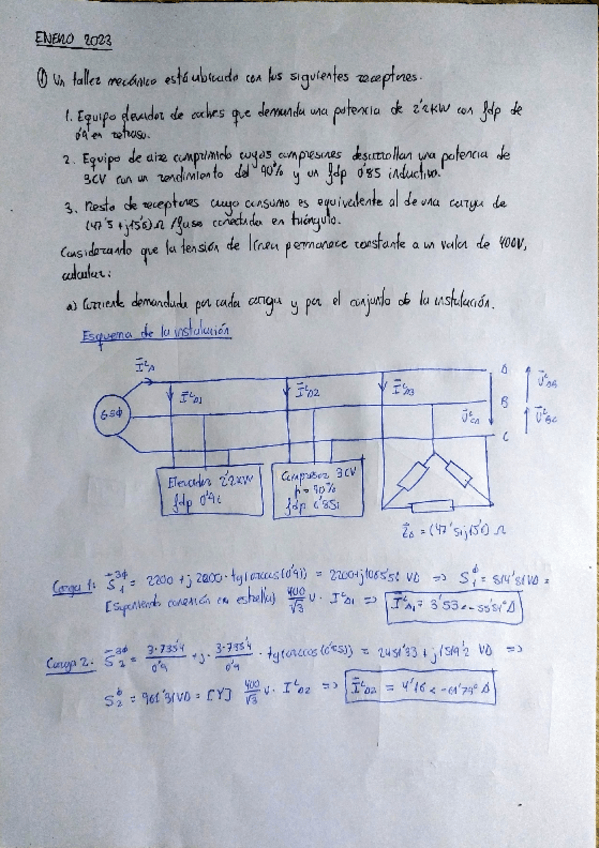 ENERO 2023
① Un taller mecánico está ubicado con los siguientes receptores.
1. Equipo elevador de coches que demanda una potencia de 2'2KW con fdp de
0'9 en retraso.
2. Equipo de aire comprimido cuyos compresores desarrollan una potencia de
3CV con un rendimiento del 90% y un fdp 0'85 inductivo.
3. Resto de receptores cuyo consumo es equivalente al de una carga de
(47'5 + j15'6) Ω /fase conectada en triángulo.
Considerando que la tensión de línea permanece constante a un valor de 400V,
calcular:
a) Corriente demandada por cada carga y por el conjunto de la instalación.
Esquema de la instalación
A
B
C
GSΦ
Elevador 2'2KW
fdp 0'9i
Compresor 3CV
η=90%
fdp 0'85i
Carga 1: = 2200 + j 2200 · tg(arccos(0'9)) = 2200+j1065'51 VA => = 814'81VA =
[Suponiendo conexión en estrella] 400/√3 V ·
Carga 2. = 3·735'4/0'9 + j · 3·735'4/0'9 · tg(arccos(0'85)) = 2451'33 + j1519'2 VA =>
= 961'31VA = [Y] 400/√3 V ·